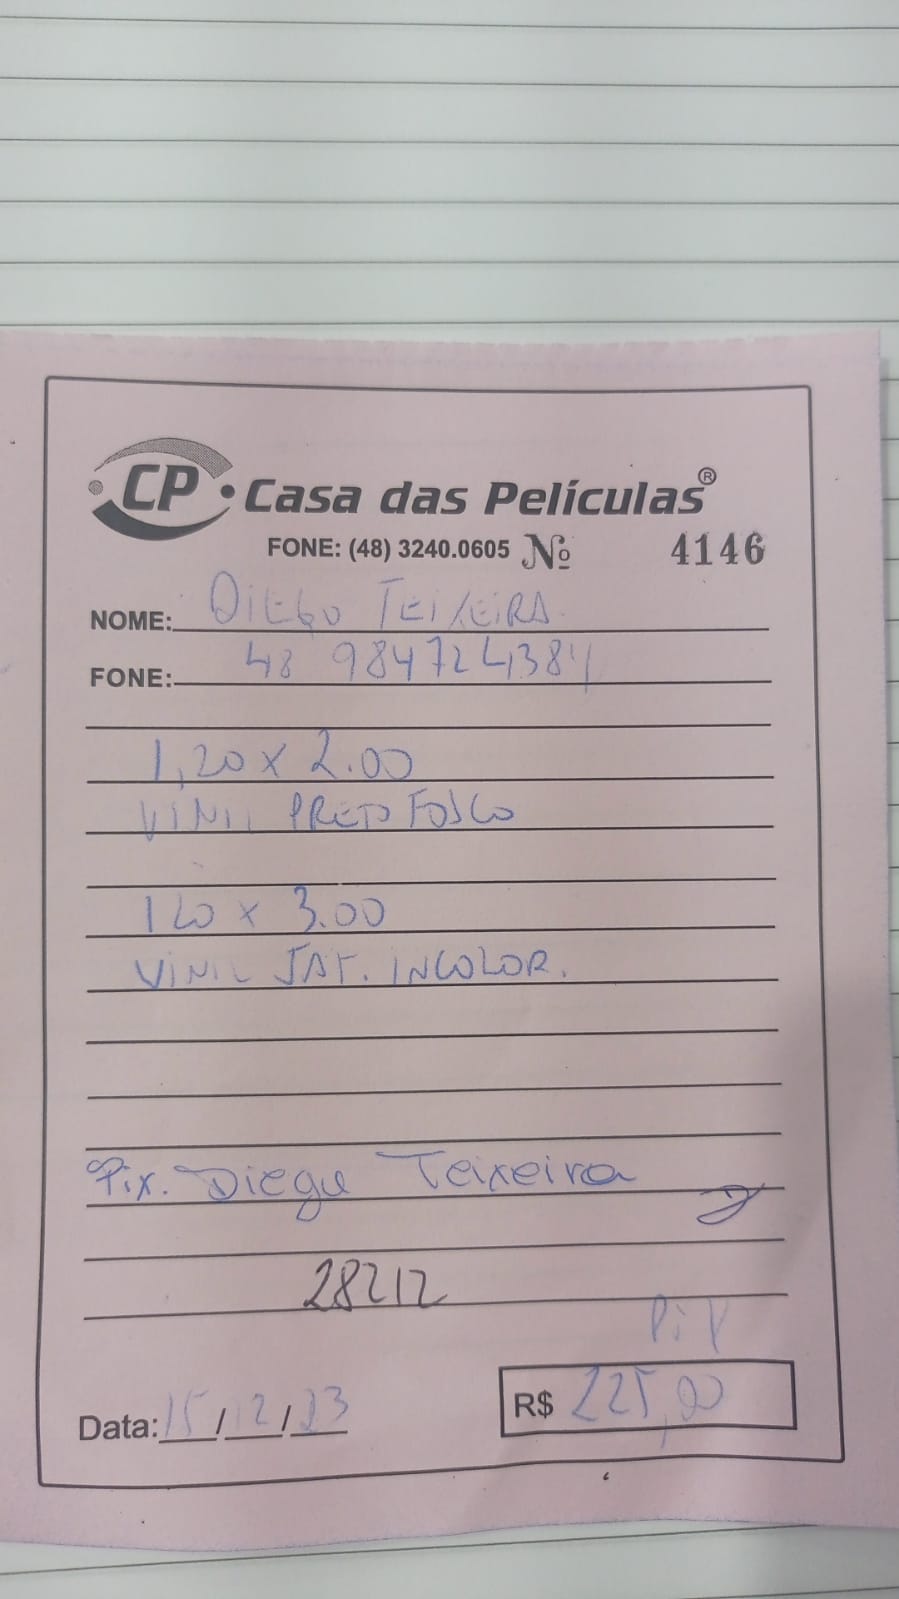 CP Casa das Películas®
FONE: (48) 3240.0605 Nº 4146
NOME: DIEGO TEIXEIRA
FONE: 48 984724384
1,20 x 2.00
VINIL PRETO FOSCO
120 x 3.00
VINIL JAT. INCOLOR.
Pix. Diego Teixeira
28212
Pix
Data: 15/12/23 R$ 225,00